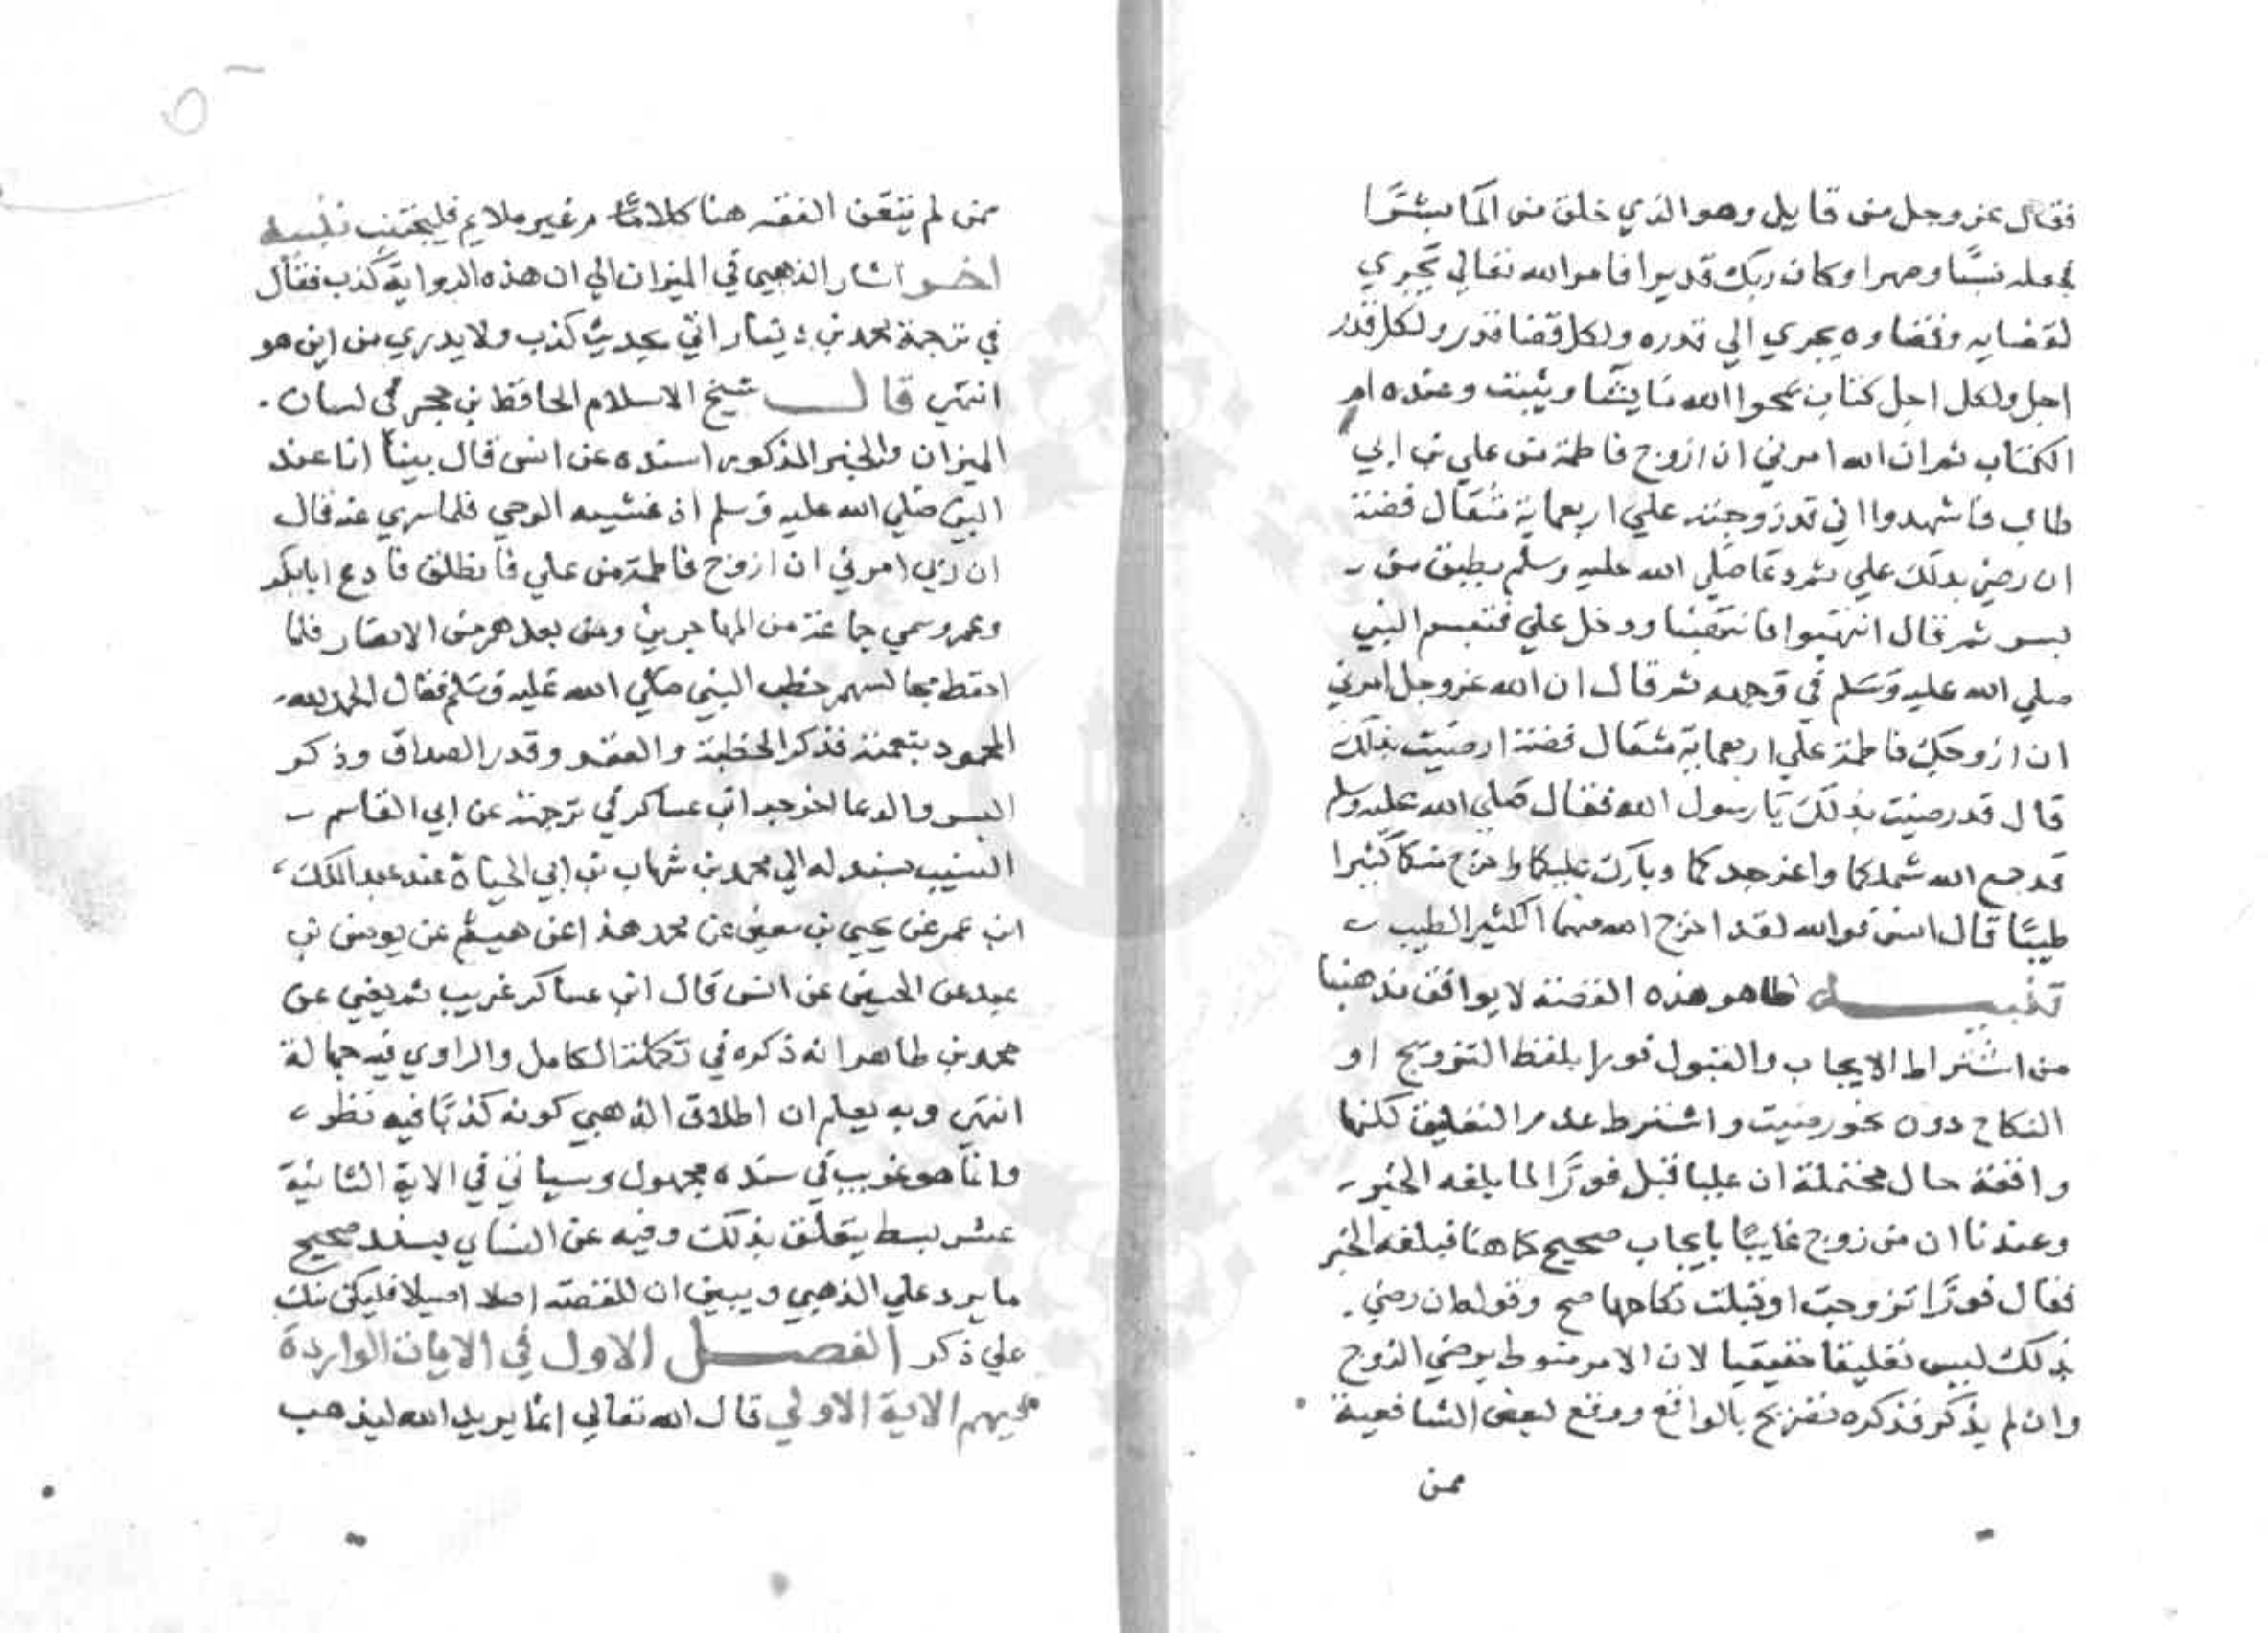 فقال عز وجل من قايل وهو الذي خلق من الما بشرًا
فجعله نسبًا وصهرا وكان ربك قديرا فامر الله تعالي يجري
لقضايه وقضاوه يجري الي قدره ولكل قضا قدر ولكل قدر
اجل ولكل اجل كتاب يمحوا الله ما يشا ويثبت وعنده ام
الكتاب ثم ان الله امرني ان ازوج فاطمة من علي بن ابي
طالب فاشهدوا اني قد زوجته علي اربعماية مثقال فضة
ان رضي بذلك علي ثم دعا صلي الله عليه وسلم بطبق من
بسر ثم قال انتهبوا فانتهبنا ودخل علي فتبسم النبي
صلي الله عليه وسلم في وجهه ثم قال ان الله عز وجل امرني
ان ازوجك فاطمة علي اربعماية مثقال فضة ارضيت بذلك
قال قد رضيت بذلك يا رسول الله فقال صلي الله عليه وسلم
قد جمع الله شملكما واعز جدكما وبارك عليكما واخرج منكما كثيرا
طيبًا قال انس فوالله لقد اخرج الله منهما الكثير الطيب
تنبيه ظاهر هذه القصة لا يوافق مذهبنا
من اشتراط الايجاب والقبول فورا بلفظ التزويج او
النكاح دون نحو رضيت واشترط عدم التعليق لكنها
واقعة حال محتملة ان عليا قبل فورًا لما بلغه الخبر
وعندنا ان من زوج غايبًا بايجاب صحيح كما هنا فبلغه الخبر
فقال فورًا تزوجت او قبلت نكاحها صح وقوله ان رضي
بذلك ليس تعليقا حقيقيا لان الامر منوط برضي الزوج
وان لم يذكر فذكره تصريح بالواقع ووقع لبعض الشافعية
ممن
ممن لم يتقن الفقه هنا كلام غير ملايم فليجتنب تنبيه
اخر اشار الذهبي في الميزان الي ان هذه الرواية كذب فقال
في ترجمة محمد بن دينار اتي بحديث كذب ولا يدري من اين هو
انتهي قال شيخ الاسلام الحافظ بن حجر في لسان
الميزان والخبر المذكور اسنده عن انس قال بينا انا عند
النبي صلي الله عليه وسلم اذ غشيه الوحي فلما سري عنه قال
ان ربي امرني ان ازوج فاطمة من علي فانطلق فادع ابابكر
وعمر وسمي جماعة من المهاجرين ومن بعدهم من الانصار فلما
اخذوا مجالسهم خطب النبي صلي الله عليه وسلم فقال الحمد لله
المحمود بنعمته فذكر الخطبة والعقد وقدر الصداق وذكر
البسر والدعا اخرجه ابن عساكر في ترجمته عن ابي القاسم
النسيب بسند له الي محمد بن شهاب بن ابي الحياة عند عبد الملك
ابن عمر عن يحيي بن معين عن محمد هذا عن هيثم عن يونس بن
عبيد عن الحسن عن انس قال ابن عساكر غريب ثم يغني عن
محمد بن طاهر انه ذكره في تكملة الكامل والراوي فيه جهالة
انتهي وبه يعلم ان اطلاق الذهبي كونه كذبًا فيه نظر
وانما هو غريب في سنده مجهول وسياتي في الاية الثانية
عشر بسط يتعلق بذلك وفيه عن النساي بسند صحيح
ما يرد علي الذهبي ويبين ان للقصة اصلا اصيلا فليكن منك
علي ذكر الفصل الاول في الايات الواردة
فيهم الاية الاولي قال الله تعالي انما يريد الله ليذهب